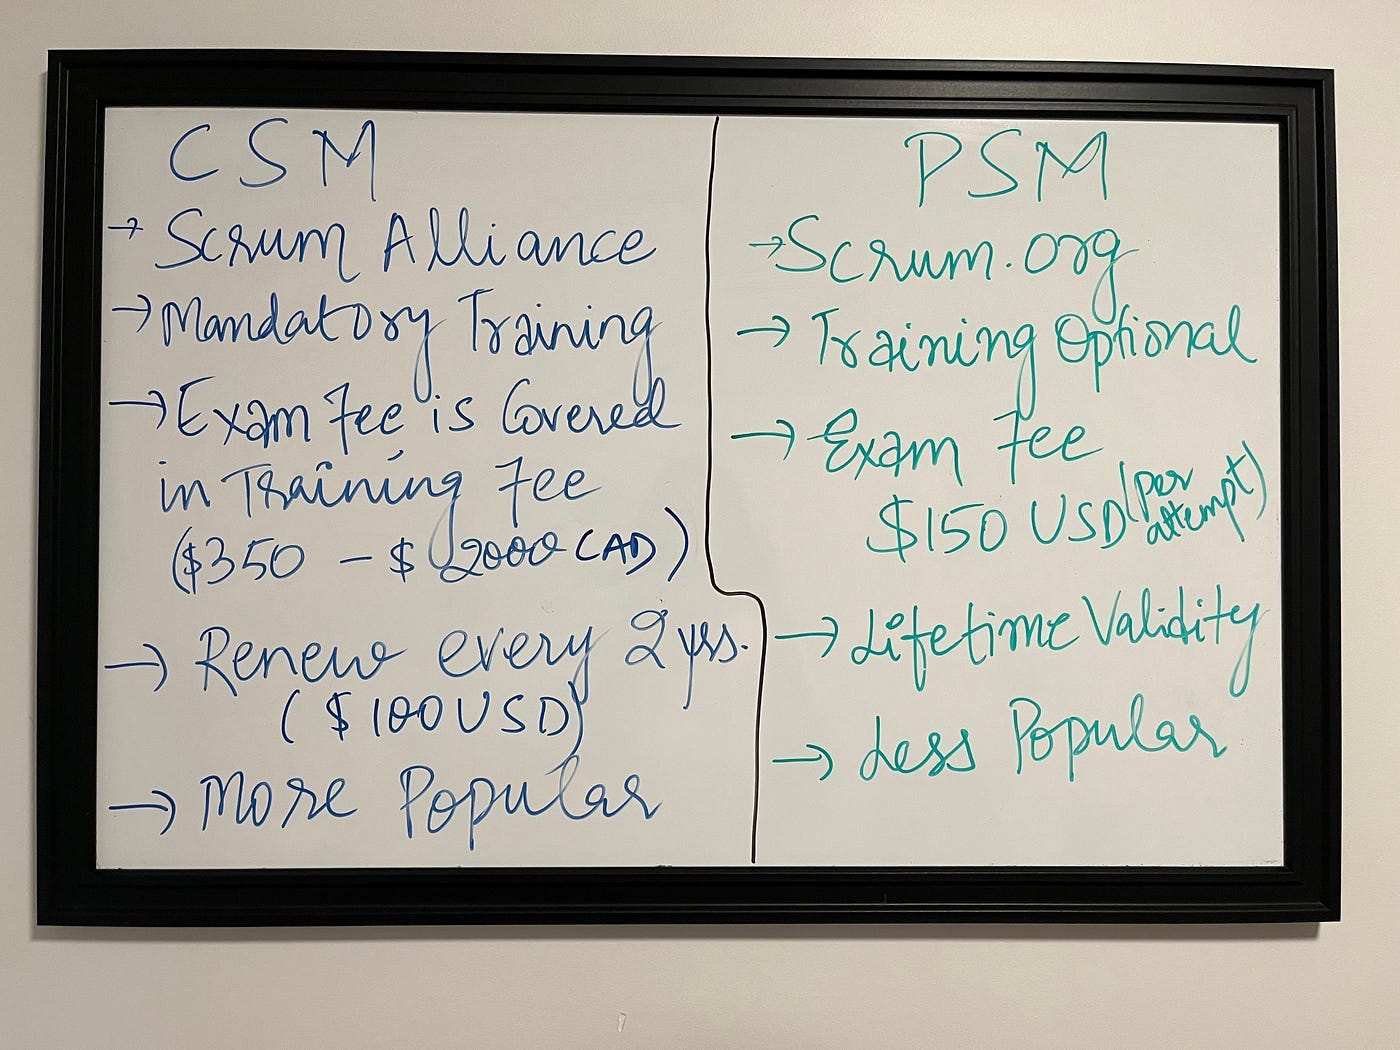 CSM
→ Scrum Alliance
→ Mandatory Training
→ Exam Fee is Covered
in Training Fee
($350 - $2000 CAD)
→ Renew every 2 yrs.
($100 USD)
→ More Popular
PSM
→ Scrum.org
→ Training Optional
→ Exam Fee
$150 USD (per
attempt)
→ Lifetime Validity
→ Less Popular